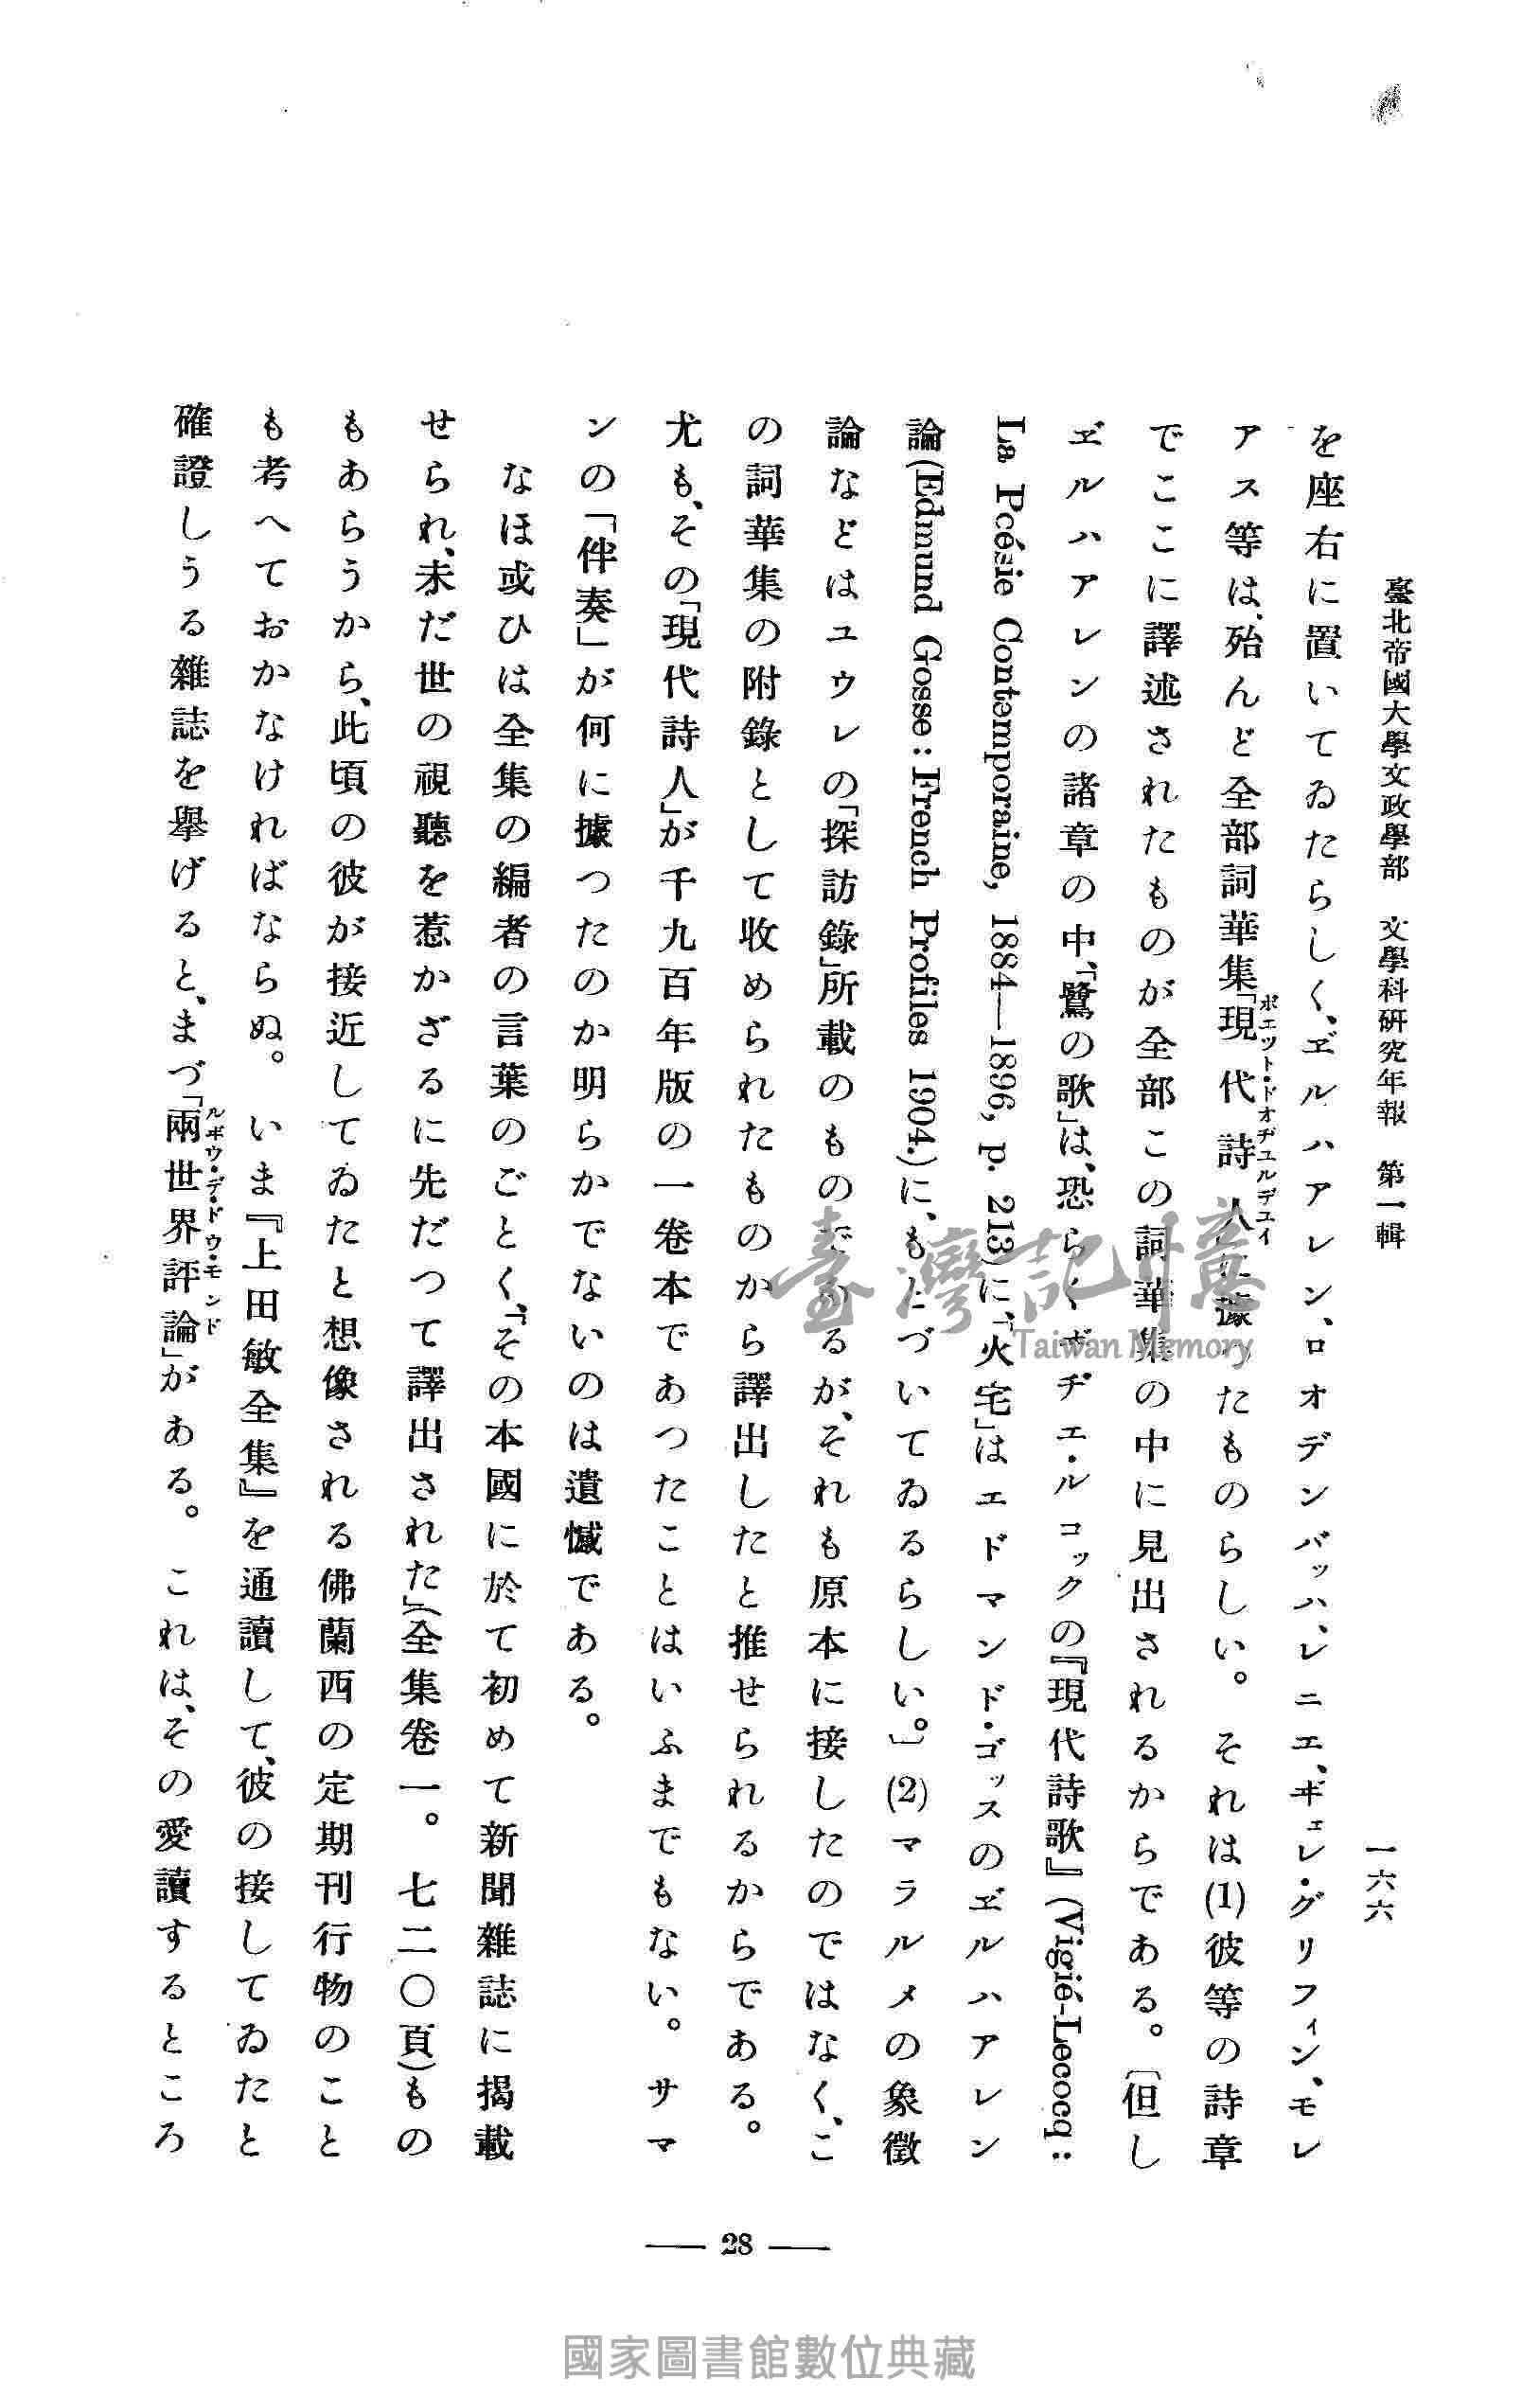 臺北帝國大學文政學部　文學科研究年報　第一輯
一六六
を座右に置いてゐたらしく、ヹルハアレン、ロオデンバッハ、レニエ、ギェレ・グリフィン、モレ
アス等は、殆んど全部詞華集「現代詩人」に據つたものらしい。　それは(1)彼等の詩章
ポエット・ドオヂユルデユイ
でここに譯述されたものが全部この詞華集の中に見出されるからである。〔但し
ヹルハアレンの諸章の中、「鷺の歌」は、恐らくヸヂエ・ルコックの『現代詩歌』(Vigié-Lecocq:
La Poésie Contemporaine, 1884—1896, p. 213)に、「火宅」はエドマンド・ゴッスのヹルハアレン
論(Edmund Gosse: French Profiles 1904.)に、もとづいてゐるらしい。〕(2)マラルメの象徵
論などはユウレの「探訪錄」所載のものであるが、それも原本に接したのではなく、こ
の詞華集の附錄として收められたものから譯出したと推せられるからである。
尤も、その「現代詩人」が千九百年版の一卷本であつたことはいふまでもない。サマ
ンの「伴奏」が何に據つたのか明らかでないのは遺憾である。
なほ或ひは全集の編者の言葉のごとく、「その本國に於て初めて新聞雜誌に揭載
せられ、未だ世の視聽を惹かざるに先だつて譯出された」(全集卷一。七二〇頁)もの
もあらうから、此頃の彼が接近してゐたと想像される佛蘭西の定期刊行物のこと
も考へておかなければならぬ。　いま『上田敏全集』を通讀して、彼の接してゐたと
確證しうる雜誌を擧げると、まづ「兩世界評論」がある。　これは、その愛讀するところ
ルヸウ・デ・ドウ・モンド
— 28 —
臺灣記憶
Taiwan Memory
國家圖書館數位典藏